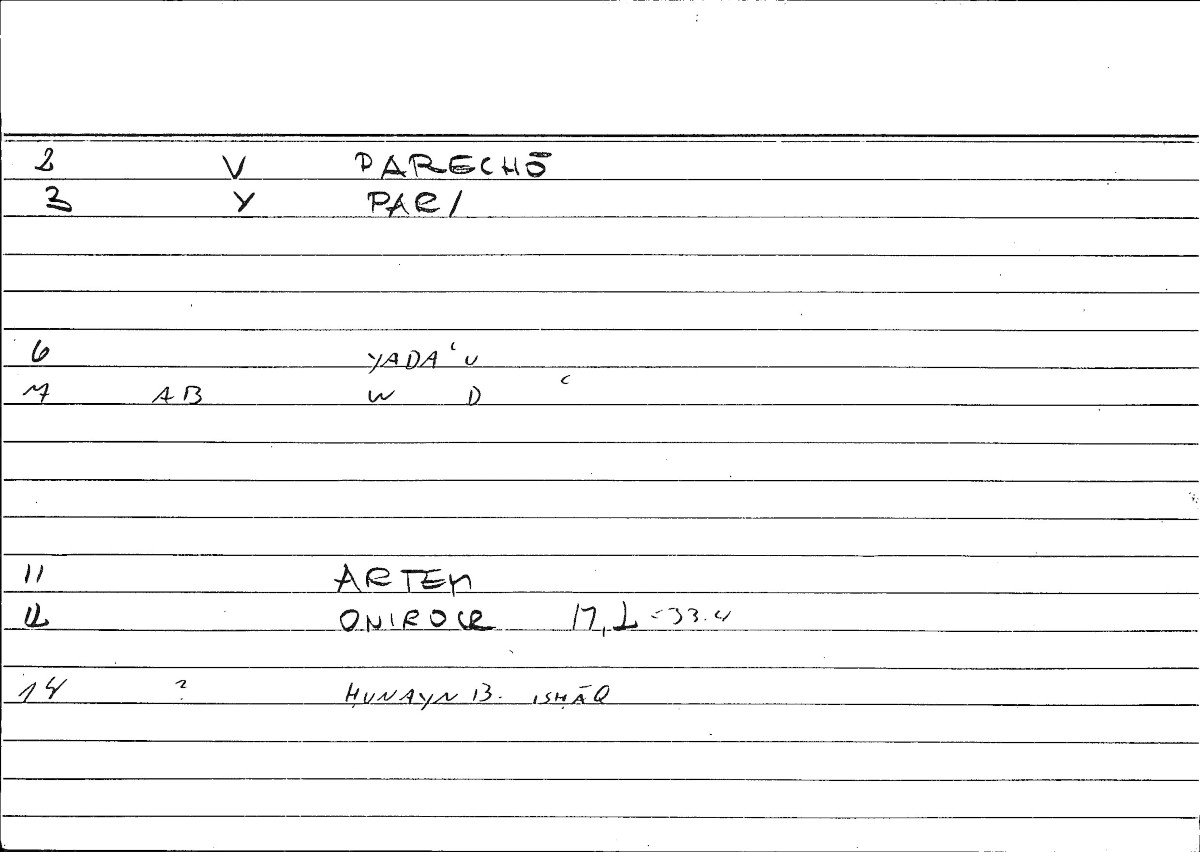 2 V PARECHŌ
3 Y PARI
6 YADAʿU
7 AB W D ʿ
11 ARTEM
12 ONIROCR 17,1 = 33.4
14 ? ḤUNAYN B. ISḤĀQ